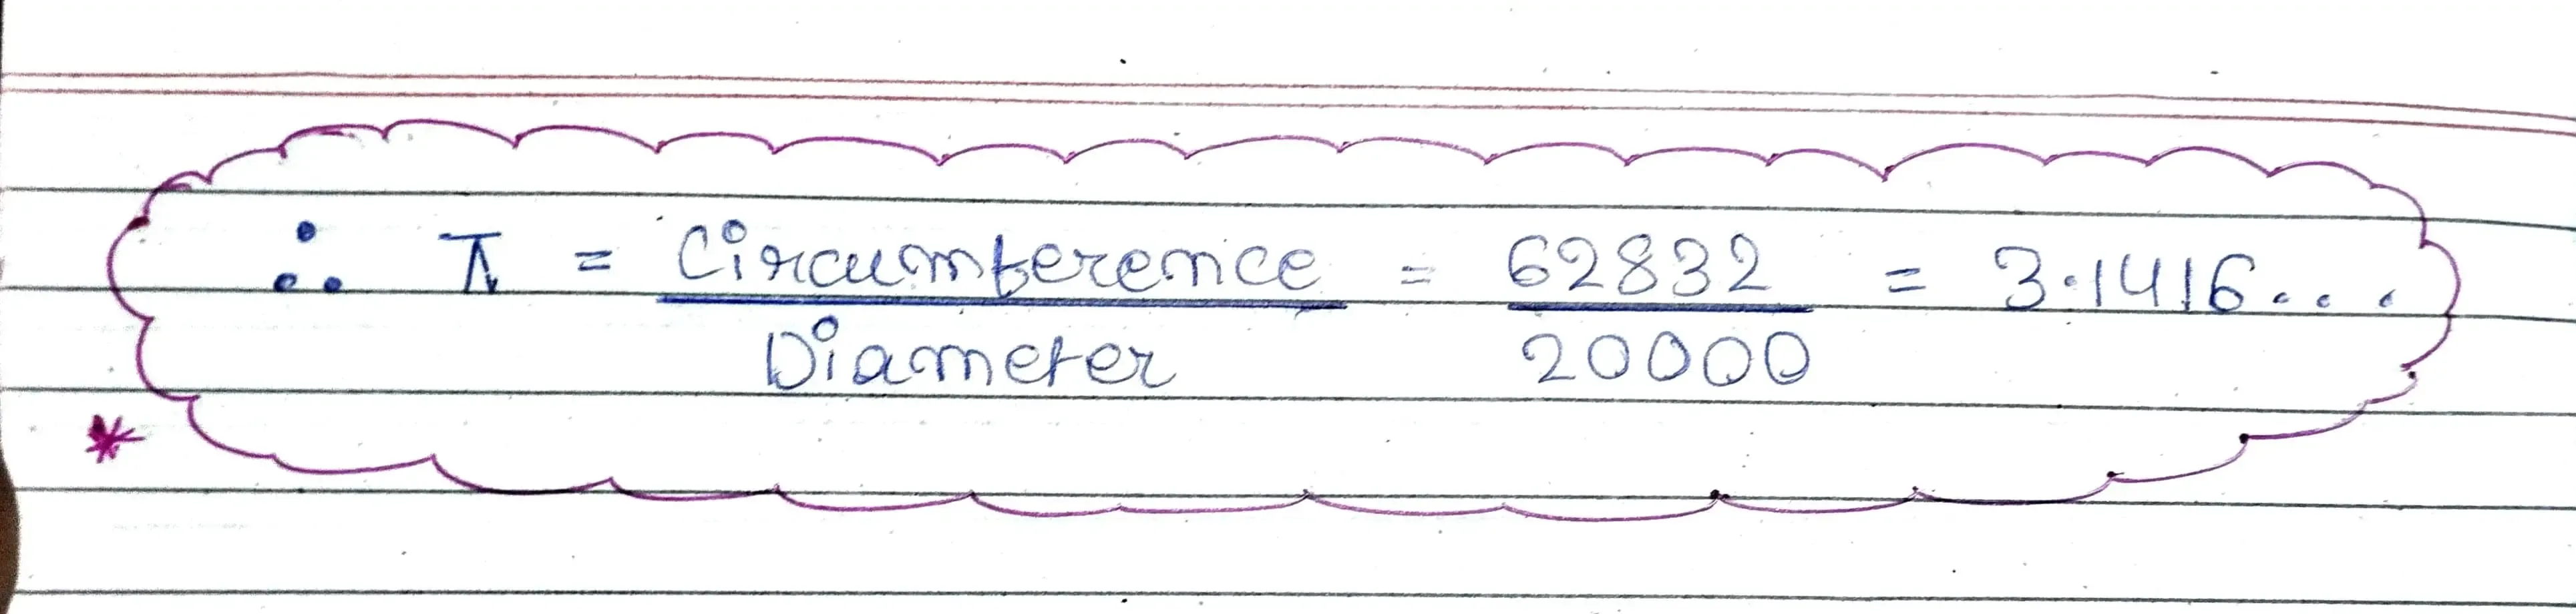 ∴ π = Circumference / Diameter = 62832 / 20000 = 3.1416...
*